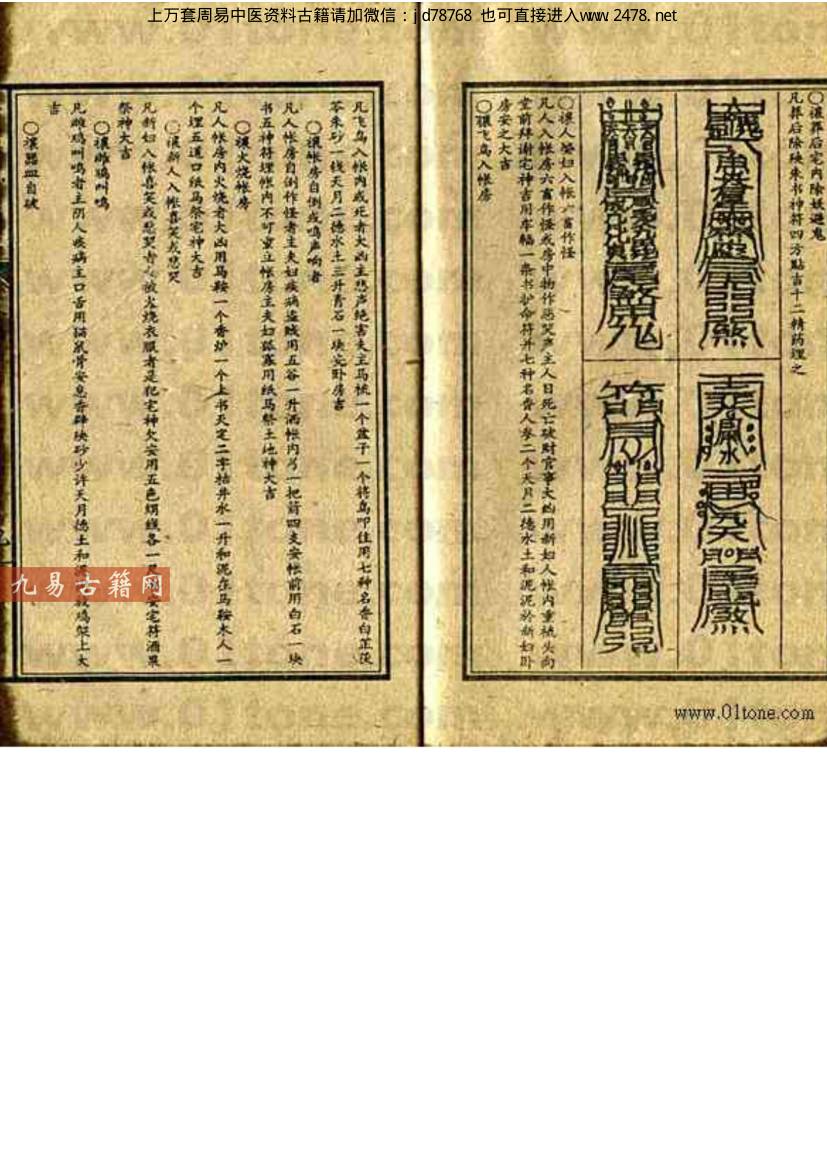 上万套周易中医资料古籍请加微信：jd78768 也可直接进入www.2478.net
〇禳葬后宅内除妖避鬼
凡葬后除殃朱书神符四方點吉十二精药埋之
〇禳人娶妇入帐六畜作怪
凡人入帐房六畜作怪或房中物作恶哭声主人日死亡破财官事大凶用新妇人帐内重梳头向
堂前拜谢宅神吉用车辐一条书护命符并七种名香人参二个天月二德水土和泥泥於新妇卧
房安之大吉
〇禳飞鸟入帐房
凡飞鸟入帐内或死者大凶主悲声绝害夫主马梳一个盆子一个将鸟叩住用七种名香白芷茯
苓朱砂一钱天月二德水土三升青石一块安卧房吉
〇禳帐房自倒或鸣声响者
凡人帐房自倒作怪者主夫妇疾病盗贼用五谷一升洒帐内弓一把箭四支安帐前用白石一块
书五神符埋帐内不可重立帐房主夫妇孤寡用纸马祭土地神大吉
〇禳火烧帐房
凡人帐房内火烧者大凶用马鞍一个香炉一个上书天定二字枯井水一升和泥在马鞍木人一
个埋五道口纸马祭宅神大吉
〇禳新人入帐喜笑或悲哭
凡新妇入帐喜笑或悲哭者心被火烧衣服者是犯宅神欠安用五色绢线各一尺
安宅符酒果
祭神大吉
〇禳雌鸡叫鸣
凡雌鸡叫鸣者主阴人疾病主口舌用猫鼠骨安息香辟殃砂少许天月德土和泥
鸡架上大
吉
〇禳器皿自破
九易古籍网
www.01tone.com